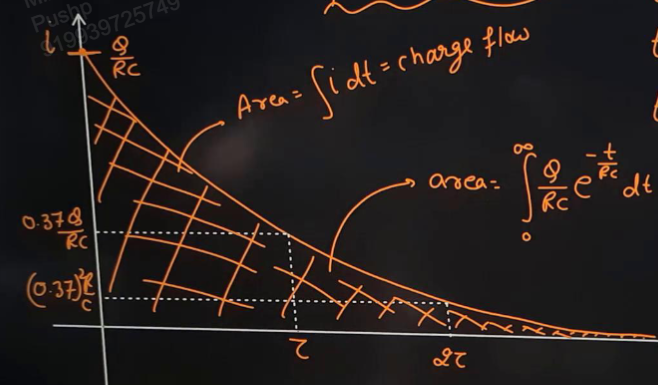 Pushp
919939725749
i
Q/RC
Area = ∫ i dt = charge flow
area = ∫₀^∞ Q/RC e^(-t/RC) dt
0.37 Q/RC
τ
2τ